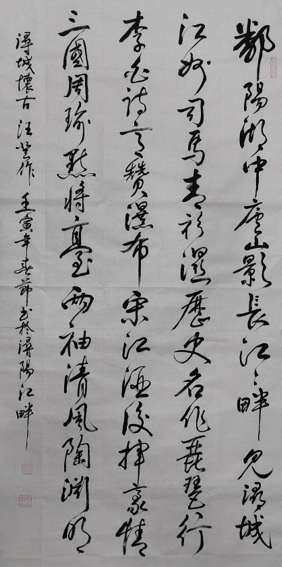 鄱陽湖中廬山影長江々畔見潯城
江州司馬青衫濕歷史名作琵琶行
李白詩言贊瀑布宋江酒後抒豪情
三國周瑜點將臺兩袖清風陶淵明
潯城懷古 汪作 壬寅年春節書於潯陽江畔